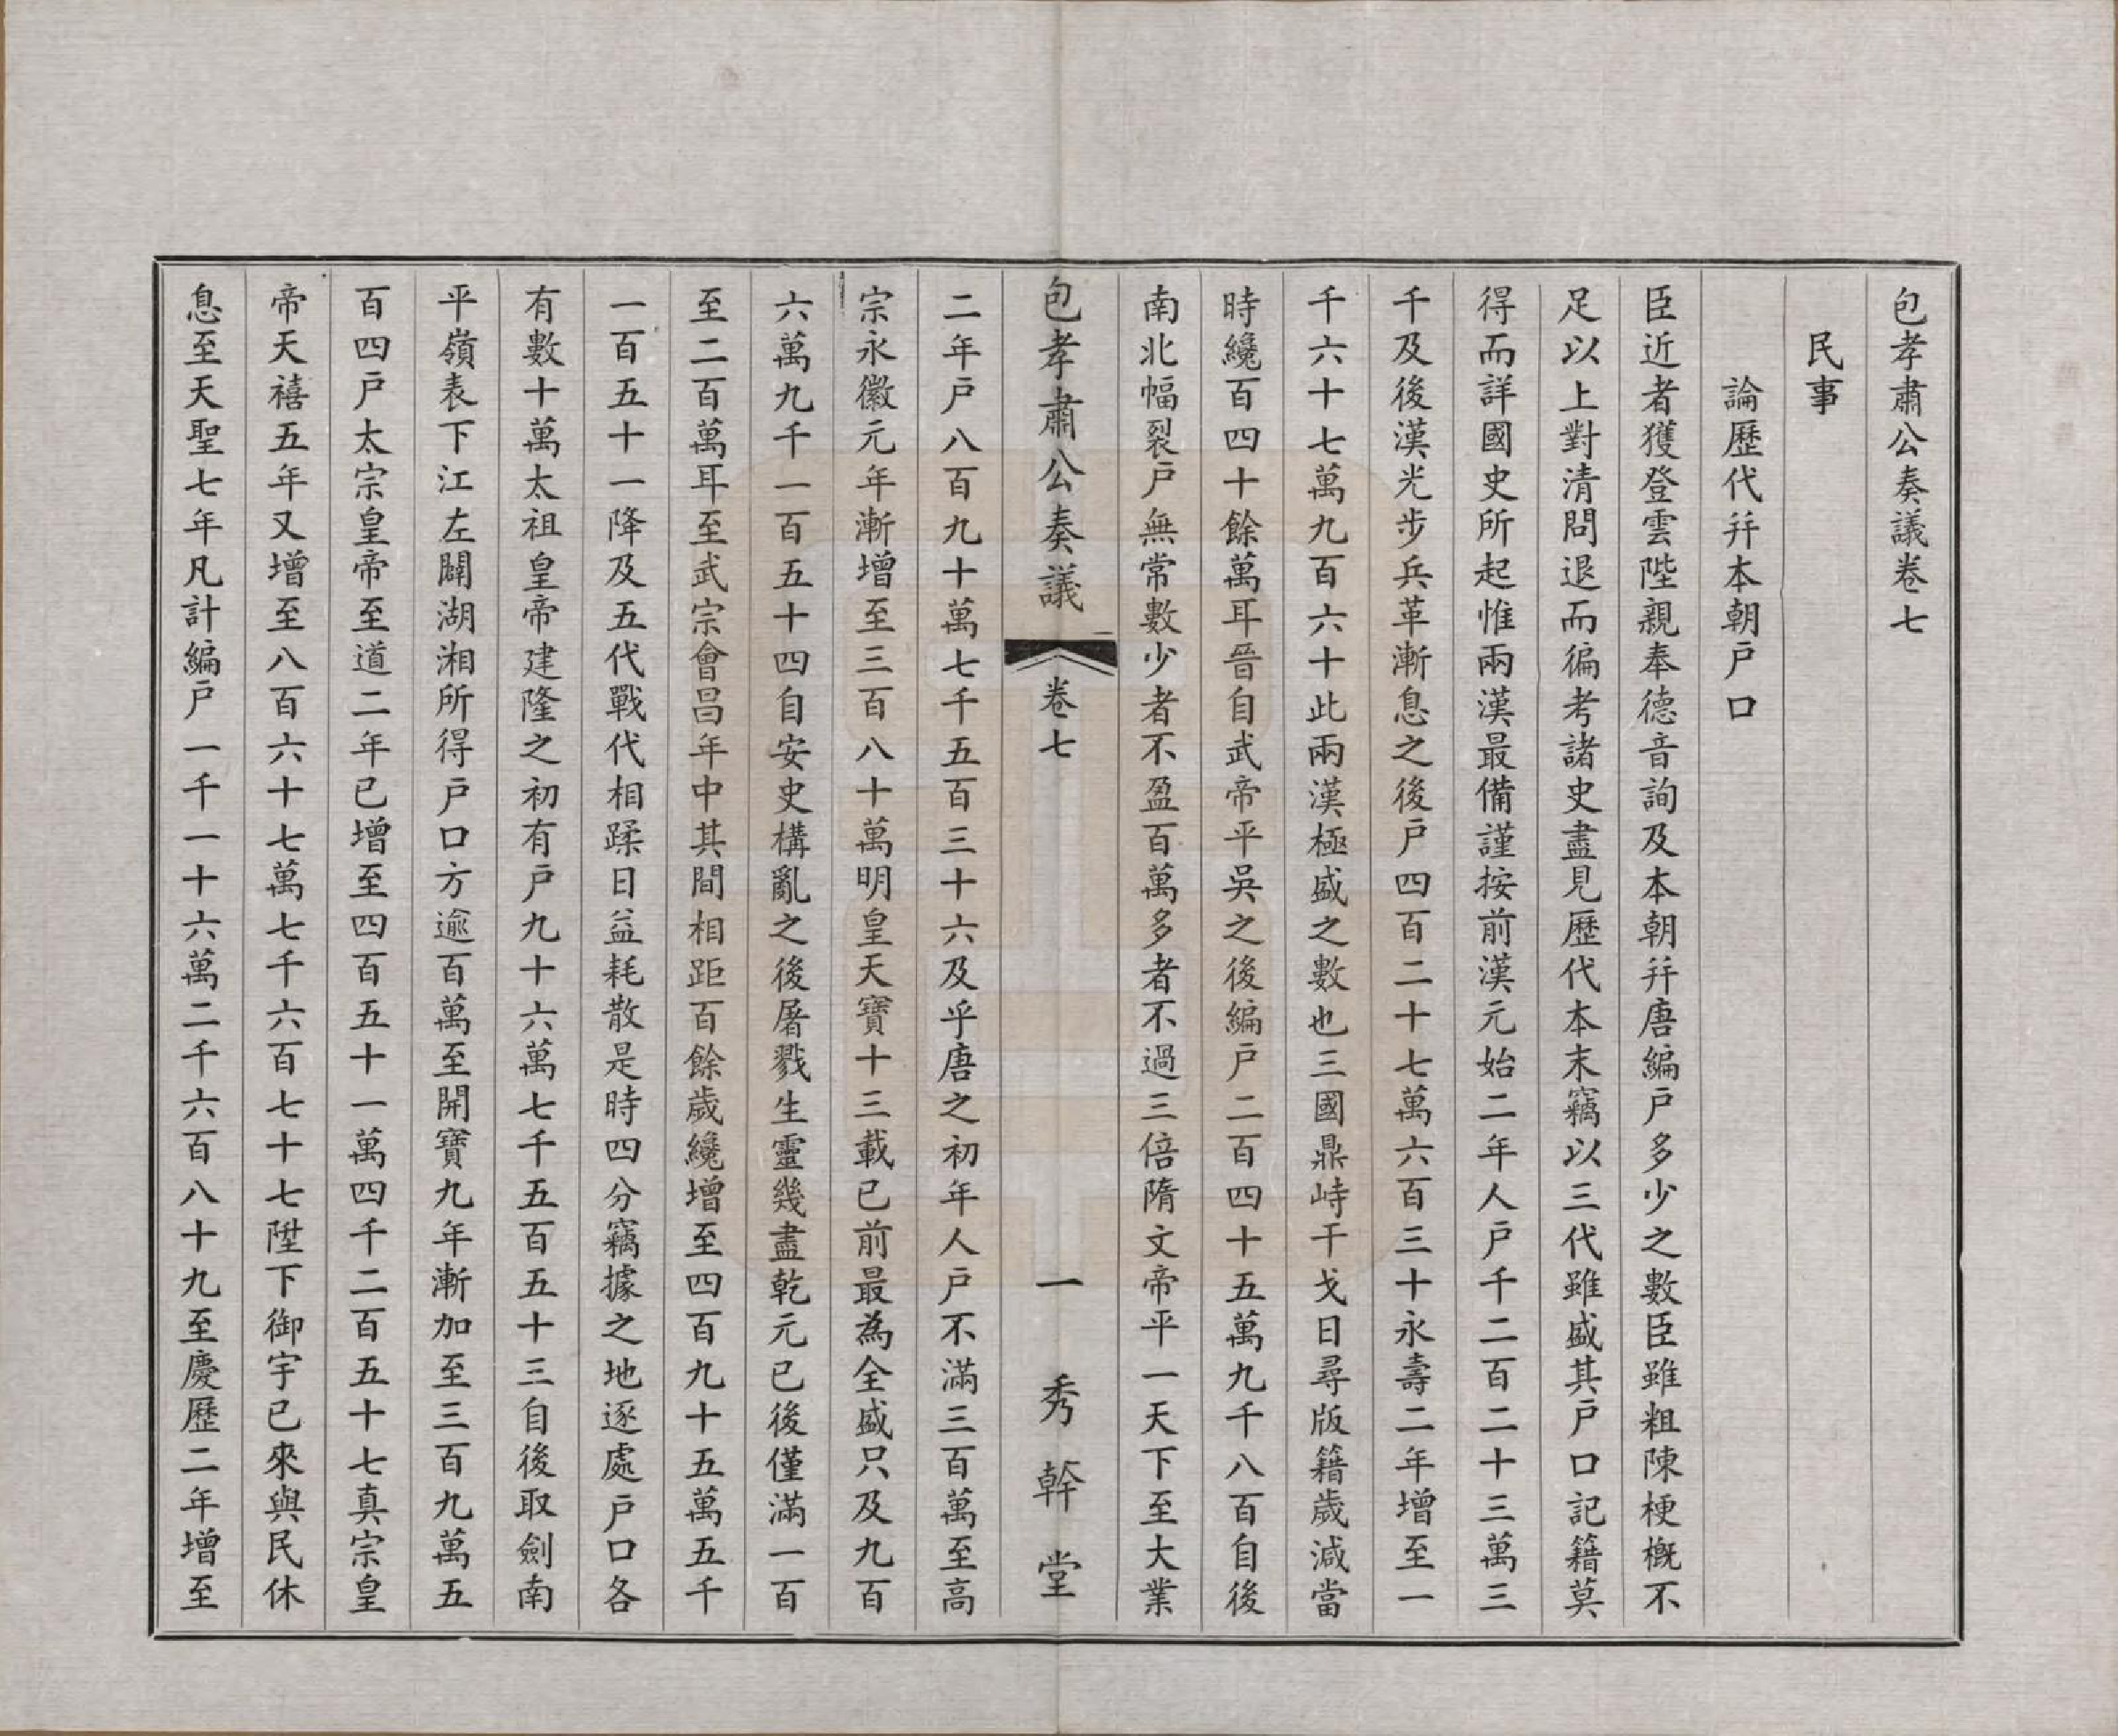 包孝肅公奏議卷七
民事
論歷代幷本朝戸口
臣近者獲登雲陛親奉德音詢及本朝幷唐編戸多少之數臣雖粗陳梗概不
足以上對清問退而徧考諸史盡見歷代本末竊以三代雖盛其戸口記籍莫
得而詳國史所起惟兩漢最備謹按前漢元始二年人戸千二百二十三萬三
千及後漢光步兵革漸息之後戸四百二十七萬六百三十永壽二年增至一
千六十七萬九百六十此兩漢極盛之數也三國鼎峙干戈日尋版籍歲減當
時纔百四十餘萬耳晉自武帝平吳之後編戸二百四十五萬九千八百自後
南北幅裂戸無常數少者不盈百萬多者不過三倍隋文帝平一天下至大業
包孝肅公奏議 卷七 一 秀幹堂
二年戸八百九十萬七千五百三十六及乎唐之初年人戸不滿三百萬至高
宗永徽元年漸增至三百八十萬明皇天寶十三載已前最為全盛只及九百
六萬九千一百五十四自安史構亂之後屠戮生靈幾盡乾元已後僅滿一百
至二百萬耳至武宗會昌年中其間相距百餘歲纔增至四百九十五萬五千
一百五十一降及五代戰代相蹂日益耗散是時四分竊據之地逐處戸口各
有數十萬太祖皇帝建隆之初有戸九十六萬七千五百五十三自後取劍南
平嶺表下江左闢湖湘所得戸口方逾百萬至開寶九年漸加至三百九萬五
百四戸太宗皇帝至道二年已增至四百五十一萬四千二百五十七真宗皇
帝天禧五年又增至八百六十七萬七千六百七十七陛下御宇已來與民休
息至天聖七年凡計編戸一千一十六萬二千六百八十九至慶歷二年增至